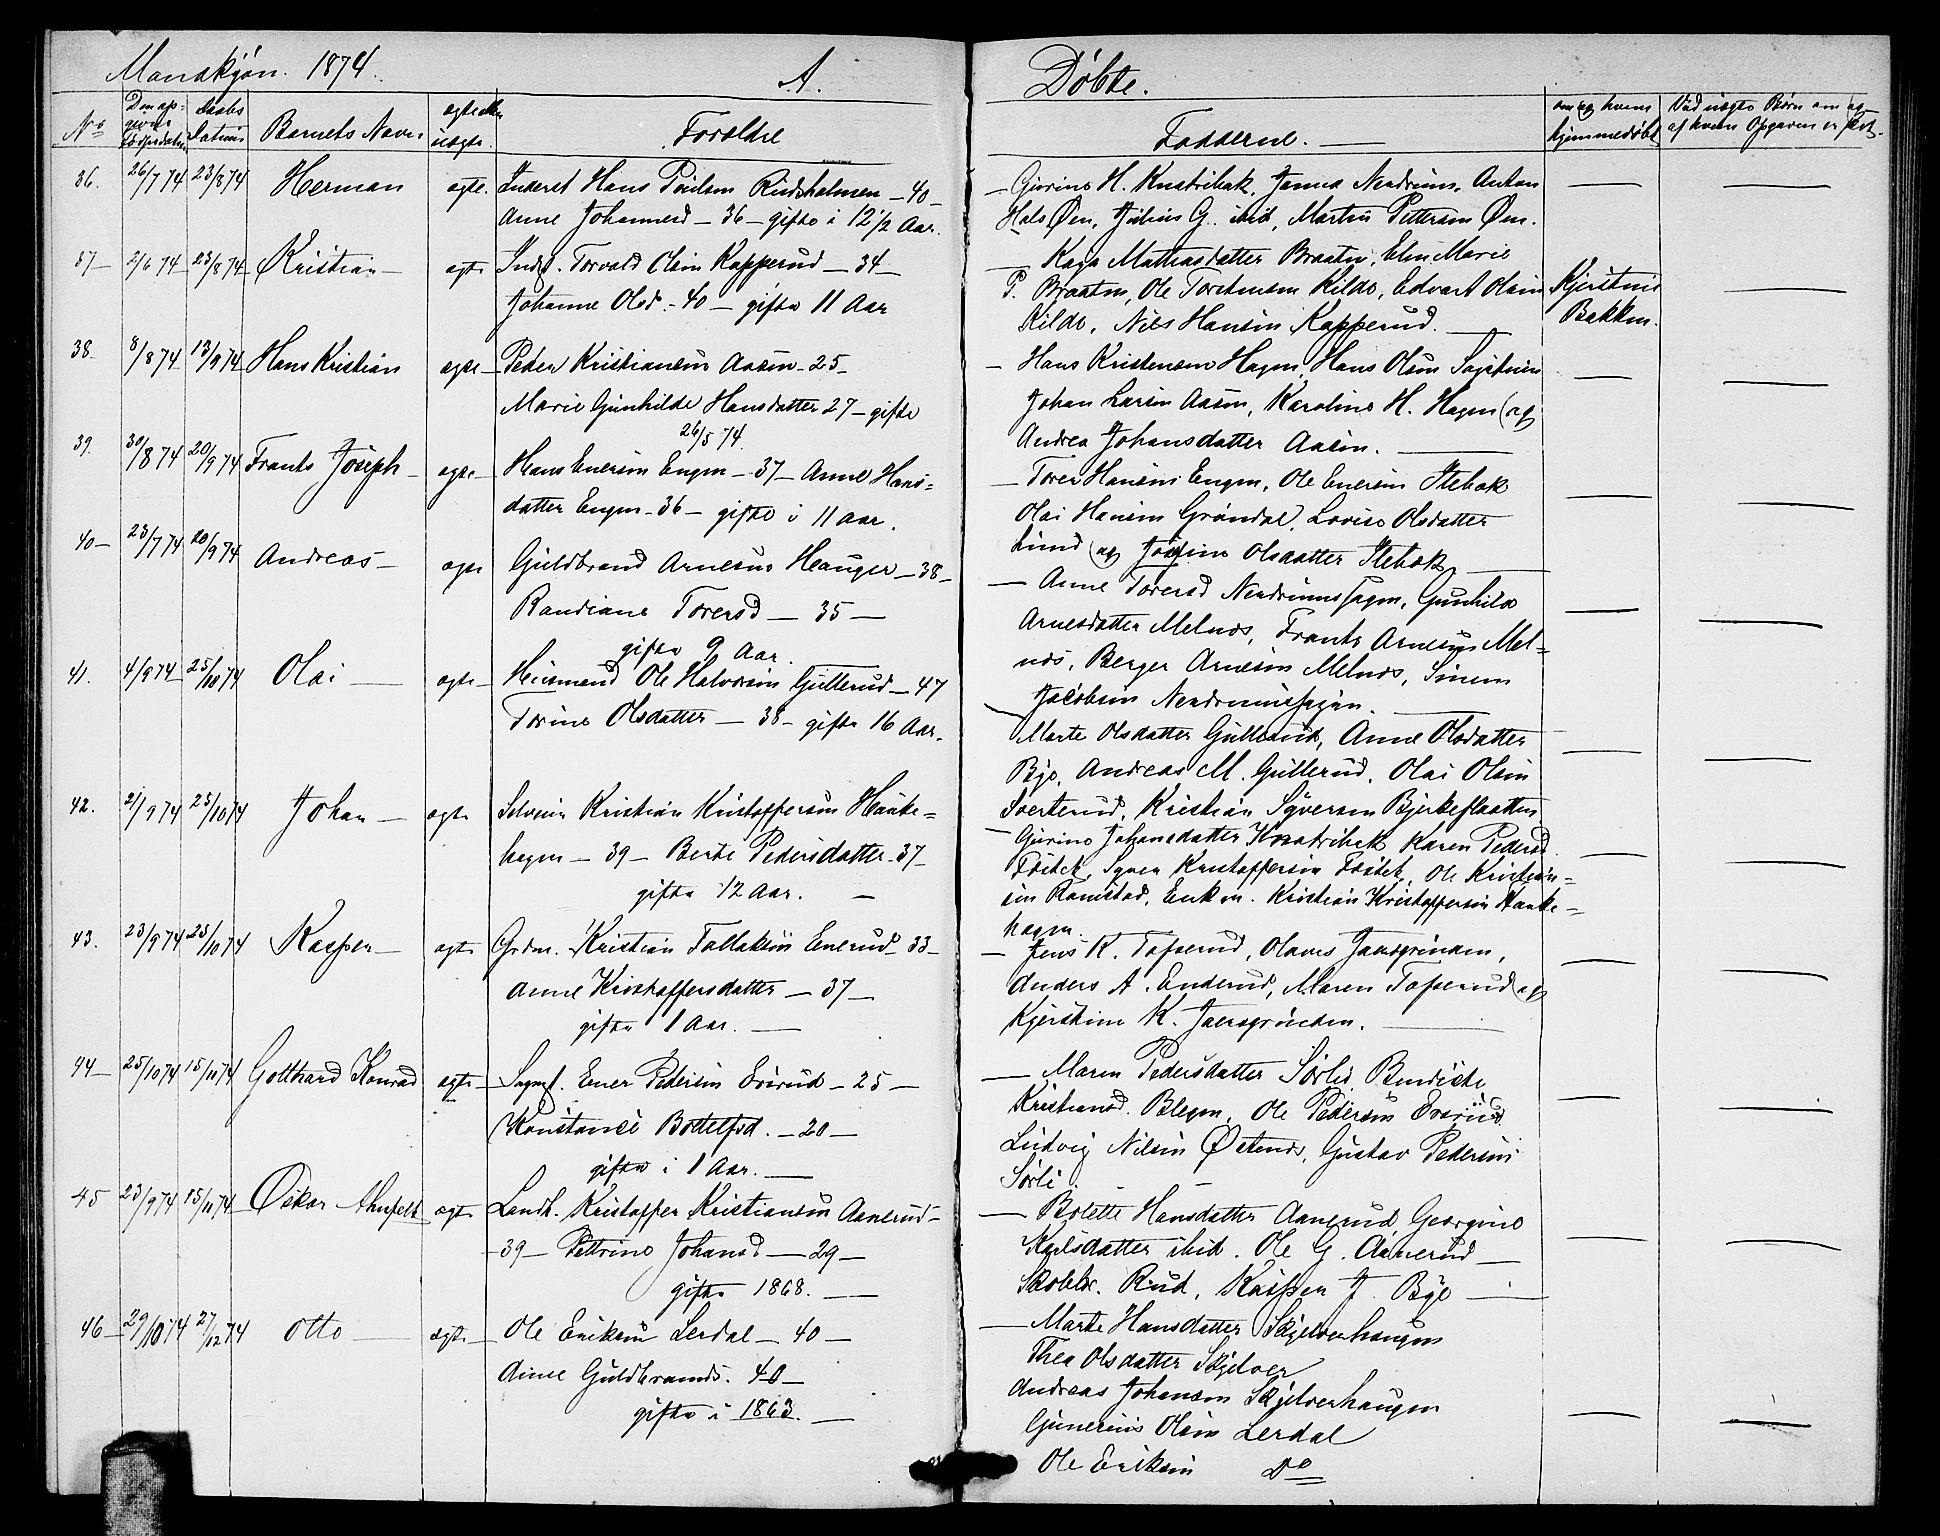 Mandkjøn. 1874. A. Døbte.
No Den opgivne Fødselsdatum Daabs Datum Barnets Navn ægte eller uægte. Forældre Faddere. om og hvem hjemmedøbt Ved uægte Børn om og af hvem Opgaven er skeet.
36. 26/7 74 23/8 74 Herman ægte. Inderst Hans Poulsen Rudsholmen - 40 -
Anne Johannesd - 36 - gifte i 12 1/2 Aar.
- Gurine H. Knatribak, Janna Nendrum, Anton
Hals Øen, Julius G. ibid, Martin Pettersen Øen.
37 - 2/6 74 23/8 74 Kristian - ægte Indst. Torvald Olsen Kapperud - 34 -
Johanne Olsd. - 40 - gifte 11 Aar
- Kaja Mathiasdatter Braaten, Elen Marie
P. Braaten, Ole Torstensen Kilde, Edvart Olsen
Kilde, Nils Hansen Kapperud. -
Kjerstine
Bakken.
38. 8/8 74 13/9 74 Hans Kristian ægte - Peder Kristiansen Aasen - 25 -
Marie Gunhilde Hansdatter 27 - gifte
26/5 74.
- Hans Kristensen Hagen, Hans Olsen
Johan Larsen Aasen, Karoline H. Hagen og
Andrea Johansdatter Aasen. -
39. 30/8 74 20/9 74 Frants Joseph - ægte - Hans Enersen Engen - 37 - Anne Hans=
datter Engen - 36 - gifte i 11 Aar.
- Torer Hansen Engen, Ole Enersen Stebak
Olai Hansen Grøndal, Lovise Olsdatter
Lund og Josefine Olsdatter Stebak -
40 - 23/7 74 20/9 74 Andreas - ægte Guldbrand Arnesen Hauger - 38 -
Randiane Torersd - 35 -
gifte 9 Aar.
- Anne Torersd Nendrumshagen, Gunhild
Arnesdatter Melnes, Frants Arnesen Mel=
nes, Berger Arnesen Melnes, Simen
Jacobsen Nendrumshagen. -
41. 4/9 74 25/10 74 Olai - ægte - Huusmand Ole Halvorsen Gullerud - 47
Torine Olsdatter - 38 - gifte 16 Aar.
Marte Olsdatter Gullerud, Anne Olsdatter
Bye, Andreas M. Gullerud, Olai Olsen
Sverterud, Kristian Syversen Bjerkeflaatten
42. 2/9 74 25/10 74 Johan - ægte Selveier Kristian Kristoffersen Hauke=
hagen - 39 - Berte Pedersdatter - 37 -
gifte 12 Aar. -
- Gurine Johansdatter Knatribak Karen Pedersd.
Syver Kristoffersen Ole Kristian=
sen Ramstad, Enkem. Kristian Kristoffersen Hauke=
hagen.
43. 23/9 74 25/10 74 Kasper - ægte Grdm. Kristian Tollaksen Enerud - 33 -
Anne Kristoffersdatter - 37 -
gifte 1 Aar. -
- Jens K. Tofserud, Olaves Jaersgrinden,
Anders A. Enderud, Maren Tofserud og
Kjerstine K. Jaersgrinden.
44 - 25/10 74 15/11 74 Gotthard Konrad ægte - Sagmst. Ener Pedersen Evsrud - 25 -
Konstance Bottelfsd. - 20 -
gifte i 1 Aar. -
- Maren Pedersdatter Sørli, Bendicte
Kristiansd. Blegen, Ole Pedersen Evsrud
Ludvig Nilsen Østenes, Gustav Pedersen
Sørli.
45 23/9 74 15/11 74 Oskar Ahnfelt ægte Landh. Kristoffer Kristiansen Aanerud -
- 39 - Pettrine Johansd - 29 -
gifte 1868. -
- Bolette Hansdatter Aanerud Georgine
Karlsdatter ibid. Ole G. Aanerud -
Skolelr. Rud, Kasper J. Bye -
46 - 29/10 74 27/12 74 Otto - ægte - Ole Eriksen Lerdal - 40 -
Anne Guldbrands. 40 -
gifte i 1863. -
- Marte Hansdatter Skjelverhaugen
Thea Olsdatter Skjelver
Andreas Johansen Skjelverhaugen
Gunerius Olsen Lerdal
Ole Eriksen Do